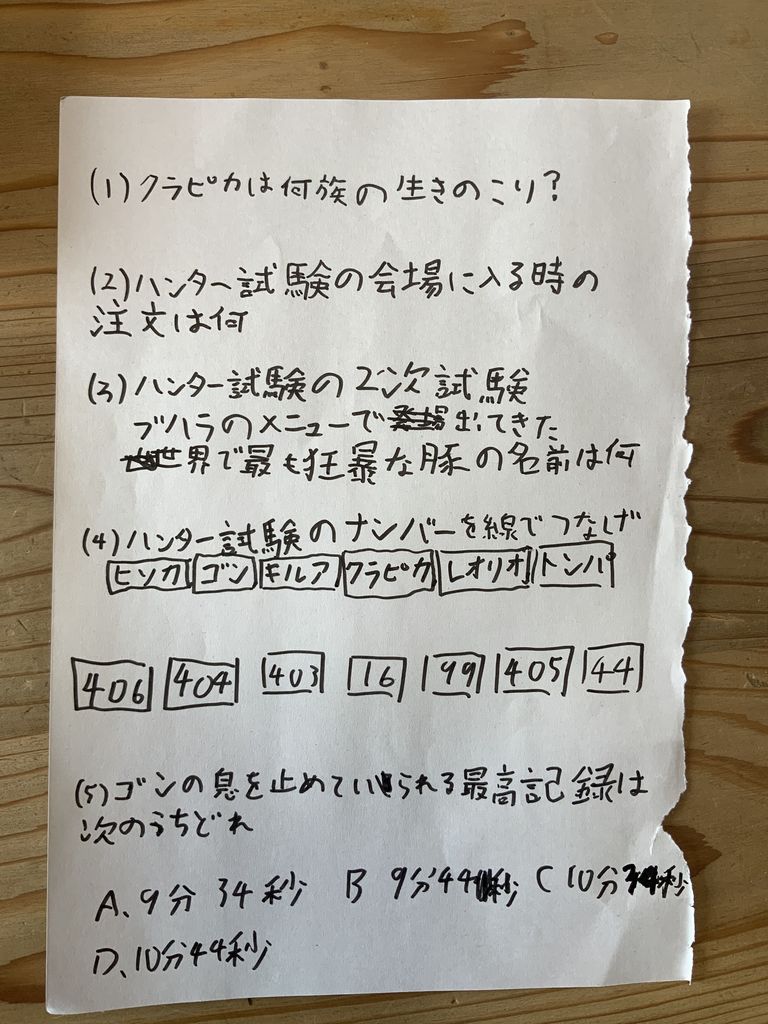 (1)クラピカは何族の生きのこり?
(2)ハンター試験の会場に入る時の
注文は何
(3)ハンター試験の2次試験
ブハラのメニューで出てきた
世界で最も狂暴な豚の名前は何
(4)ハンター試験のナンバーを線でつなげ
ヒソカ ゴン キルア クラピカ レオリオ トンパ
406 404 403 16 99 405 44
(5)ゴンの息を止めていられる最高記録は
次のうちどれ
A、9分 34秒 B 9分44秒 C 10分34秒
D、10分44秒